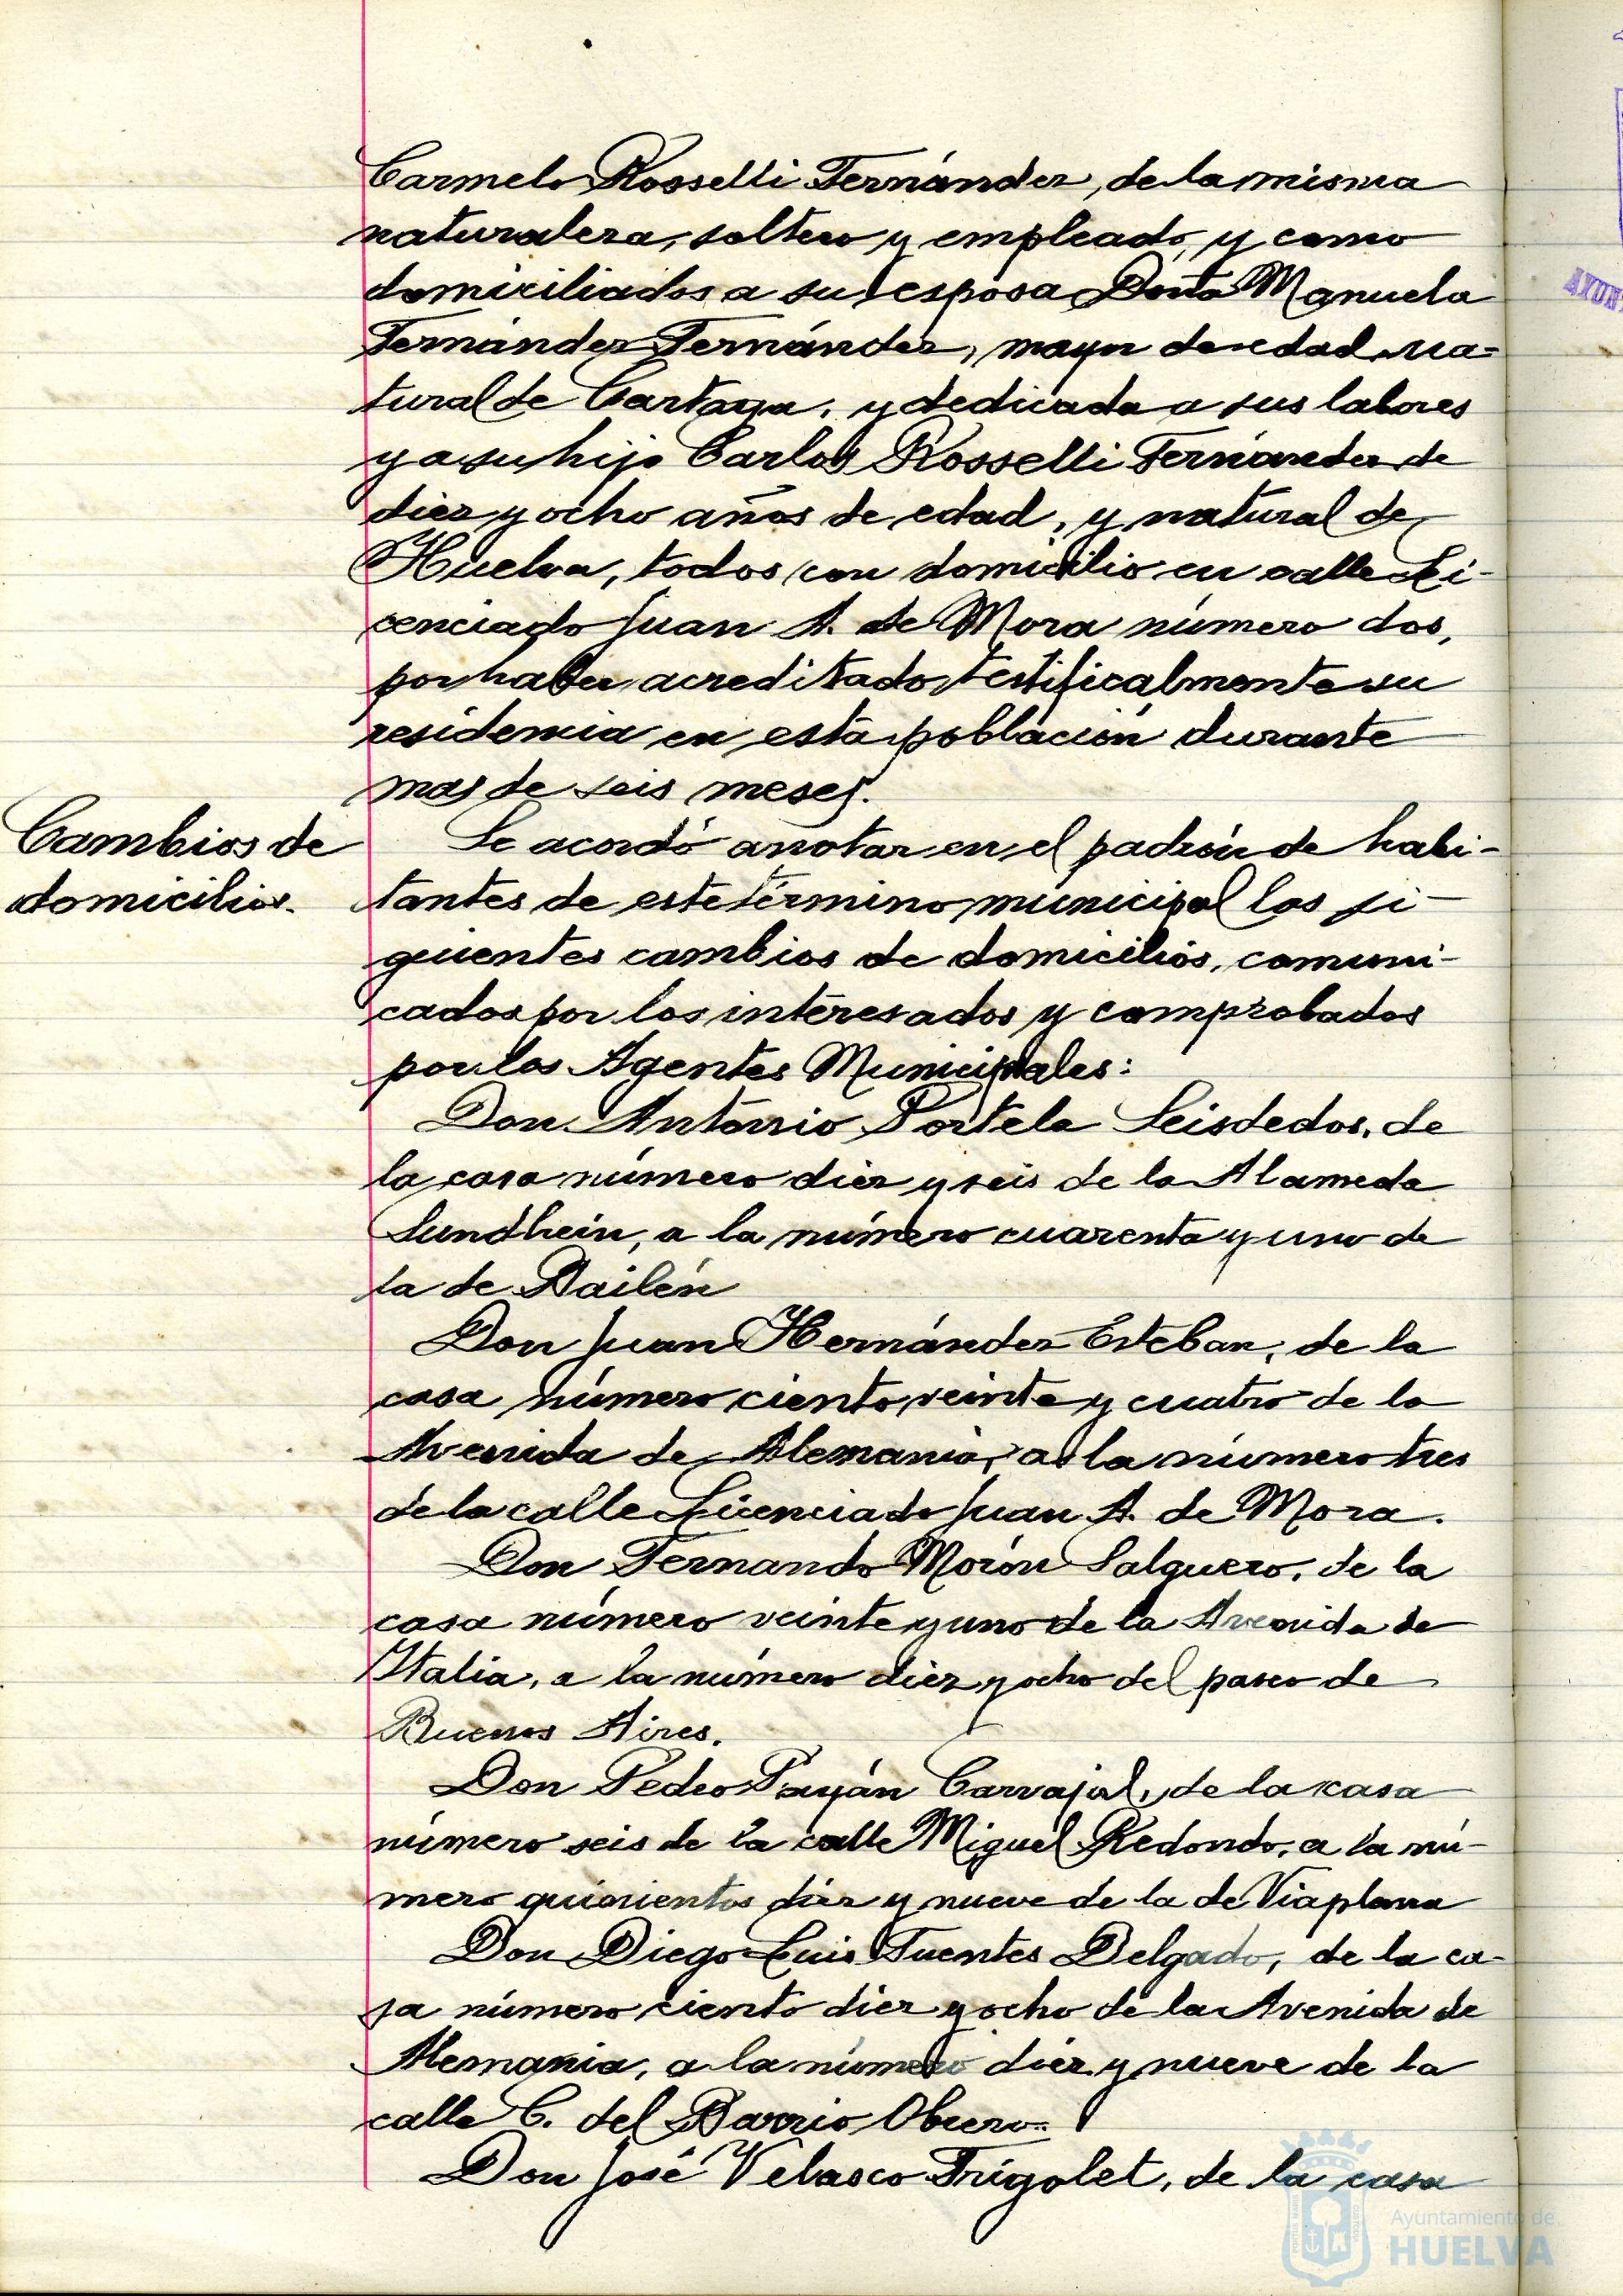 Carmelo Rosselli Fernández, de la misma
naturaleza, soltero y empleado, y como
domiciliados a su esposa Doña Manuela
Fernández Fernández, mayor de edad, na-
tural de Cartaya, y dedicada a sus labores
y a su hijo Carlos Rosselli Fernández de
diez y ocho años de edad, y natural de
Huelva, todos con domicilio en calle Li-
cenciado Juan A. de Mora número dos,
por haber acreditado testificalmente su
residencia en esta población durante
mas de seis meses.
Cambios de
domicilios.
Se acordó anotar en el padrón de habi-
tantes de este término municipal los si-
guientes cambios de domicilios, comuni-
cados por los interesados y comprobados
por los Agentes Municipales:
Don Antonio Portela Seisdedos, de
la casa número diez y seis de la Alameda
Sundhein, a la número cuarenta y uno de
la de Bailén
Don Juan Hernández Esteban, de la
casa número ciento veinte y cuatro de la
Avenida de Alemania, a la número tres
de la calle Licenciado Juan A. de Mora.
Don Fernando Morón Salguero, de la
casa número veinte y uno de la Avenida de
Italia, a la número diez y ocho del paseo de
Buenos Aires.
Don Pedro Payán Carvajal, de la casa
número seis de la calle Miguel Redondo, a la nú-
mero quinientos diez y nueve de la de Viaplana
Don Diego Luis Fuentes Delgado, de la ca-
sa número ciento diez y ocho de la Avenida de
Alemania, a la número diez y nueve de la
calle C. del Barrio Obrero.
Don José Velasco Frigolet, de la casa
Ayuntamiento de
HUELVA